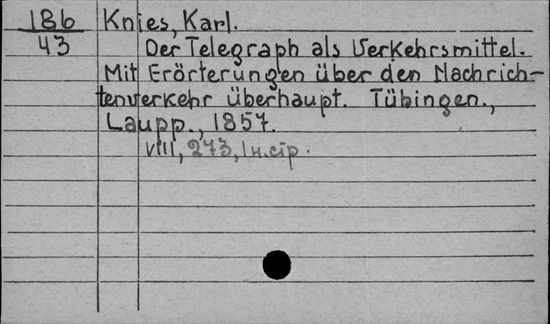 186 Knies, Karl.
43 Der Telegraph als Verkehrsmittel.
Mit Erörterungen über den Nachrich-
tenverkehr überhaupt. Tübingen.,
Laupp., 1857.
VIII, 273, 1 н. стр.